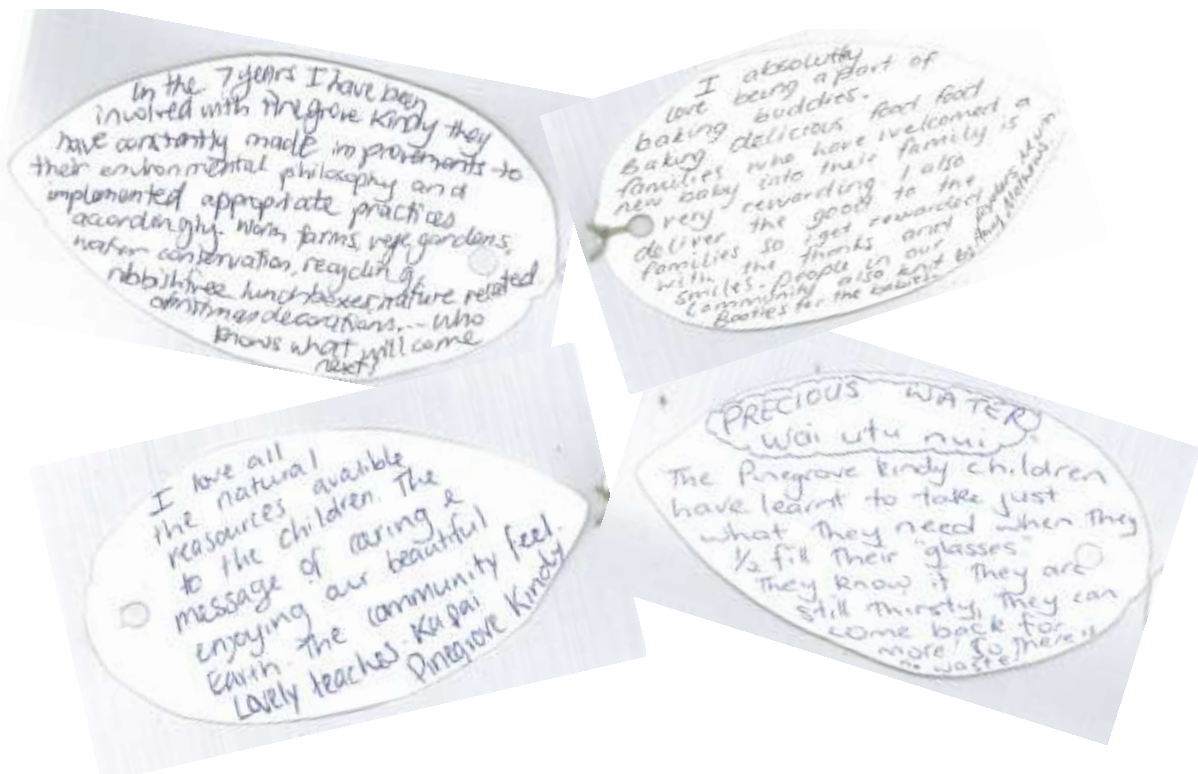 In the 7 years I have been
involved with Pinegrove Kindy they
have constantly made improvements to
their environmental philosophy and
implemented appropriate practices
accordingly. Worm farms, vege gardens,
water conservation, recycling
rubbish free lunchboxes, nature related
christmas decorations,... who
knows what will come
next?
I absolutly
love being a part of
baking buddies.
Baking delicious food food
families who have welcomed a
new baby into their family is
very rewarding I also
deliver the good to the
families so I get rewarded
with the thanks and
smiles. People in our
Community also knit
Booties for the babies.
I love all
the natural
reasources avalible
to the children. The
message of caring &
enjoying our beautiful
Earth. The community feel.
Lovely teaches. Ka pai
Pinegrove Kindy
PRECIOUS WATER
wai utu nui
The Pinegrove kindy children
have learnt to take just
what they need when they
1/2 fill their "glasses"
They know if they are
still thirsty, they can
come back for
more! So there is
no waste!